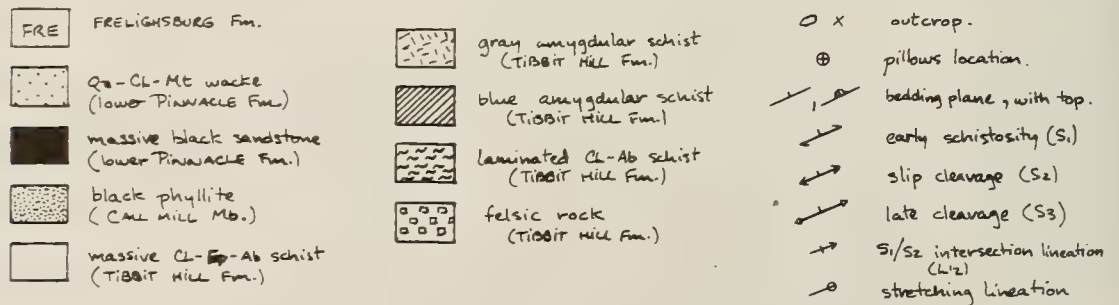 FRE FRELIGHSBURG Fm.
Qz-CL-Mt wacke
(lower PINNACLE Fm.)
massive black sandstone
(lower PINNACLE Fm.)
black phyllite
(CALL MILL Mb.)
massive CL-Ep-Ab schist
(TIBBIT HILL Fm.)
gray amygdular schist
(TIBBIT HILL Fm.)
blue amygdular schist
(TIBBIT HILL Fm.)
laminated CL-Ab schist
(TIBBIT HILL Fm.)
felsic rock
(TIBBIT HILL Fm.)
outcrop.
pillows location.
bedding plane, with top.
early schistosity (S1)
slip cleavage (S2)
late cleavage (S3)
S1/S2 intersection lineation
(L12)
stretching lineation